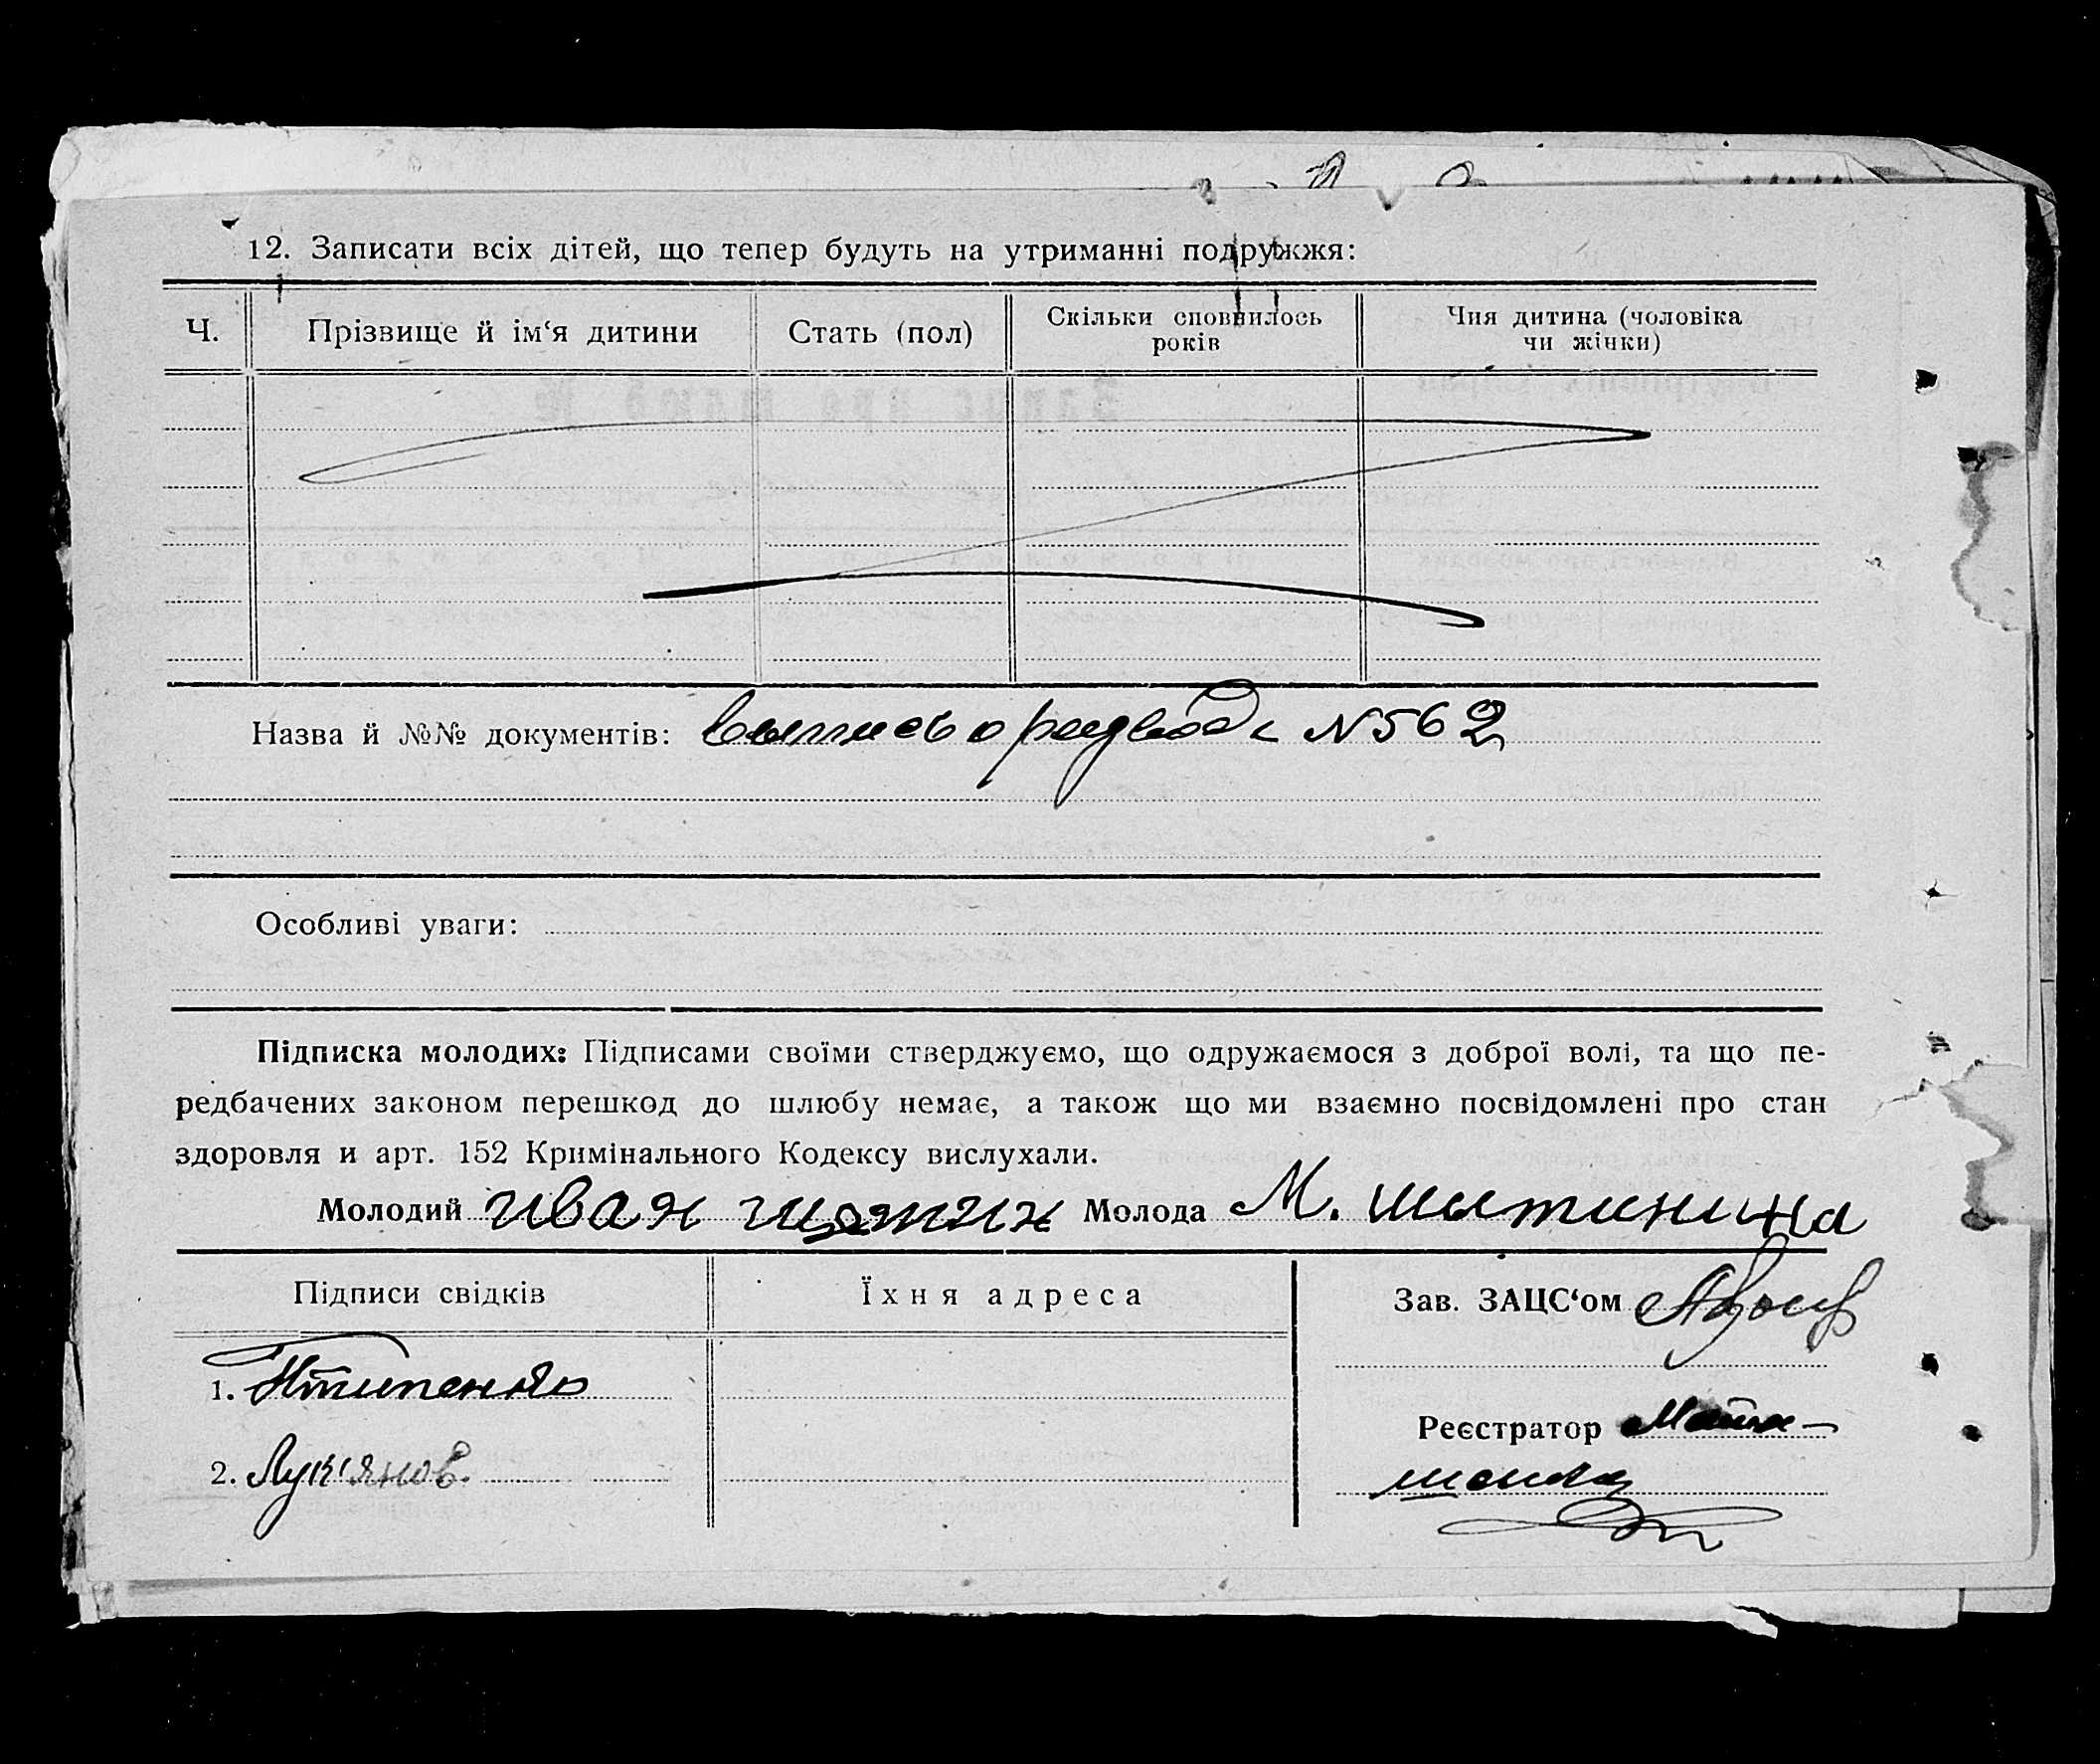 12. Записати всіх дітей, що тепер будуть на утриманні подружжя:
Ч. Прізвище й ім‘я дитини Стать (пол) Скільки сповнилось років Чия дитина (чоловіка чи жінки)
Назва й №№ документів: выпись о разводе N 562
Особливі уваги:
Підписка молодих: Підписами своїми стверджуємо, що одружаємося з доброї волі, та що пе-
редбачених законом перешкод до шлюбу немає, а також що ми взаємно посвідомлені про стан
здоровля и арт. 152 Кримінального Кодексу вислухали.
Молодий Иван Молода М. шытинина
Підписи свідків Їхня адреса Зав. ЗАЦС‘ом
1.
Реєстратор
2. Лук'янов.